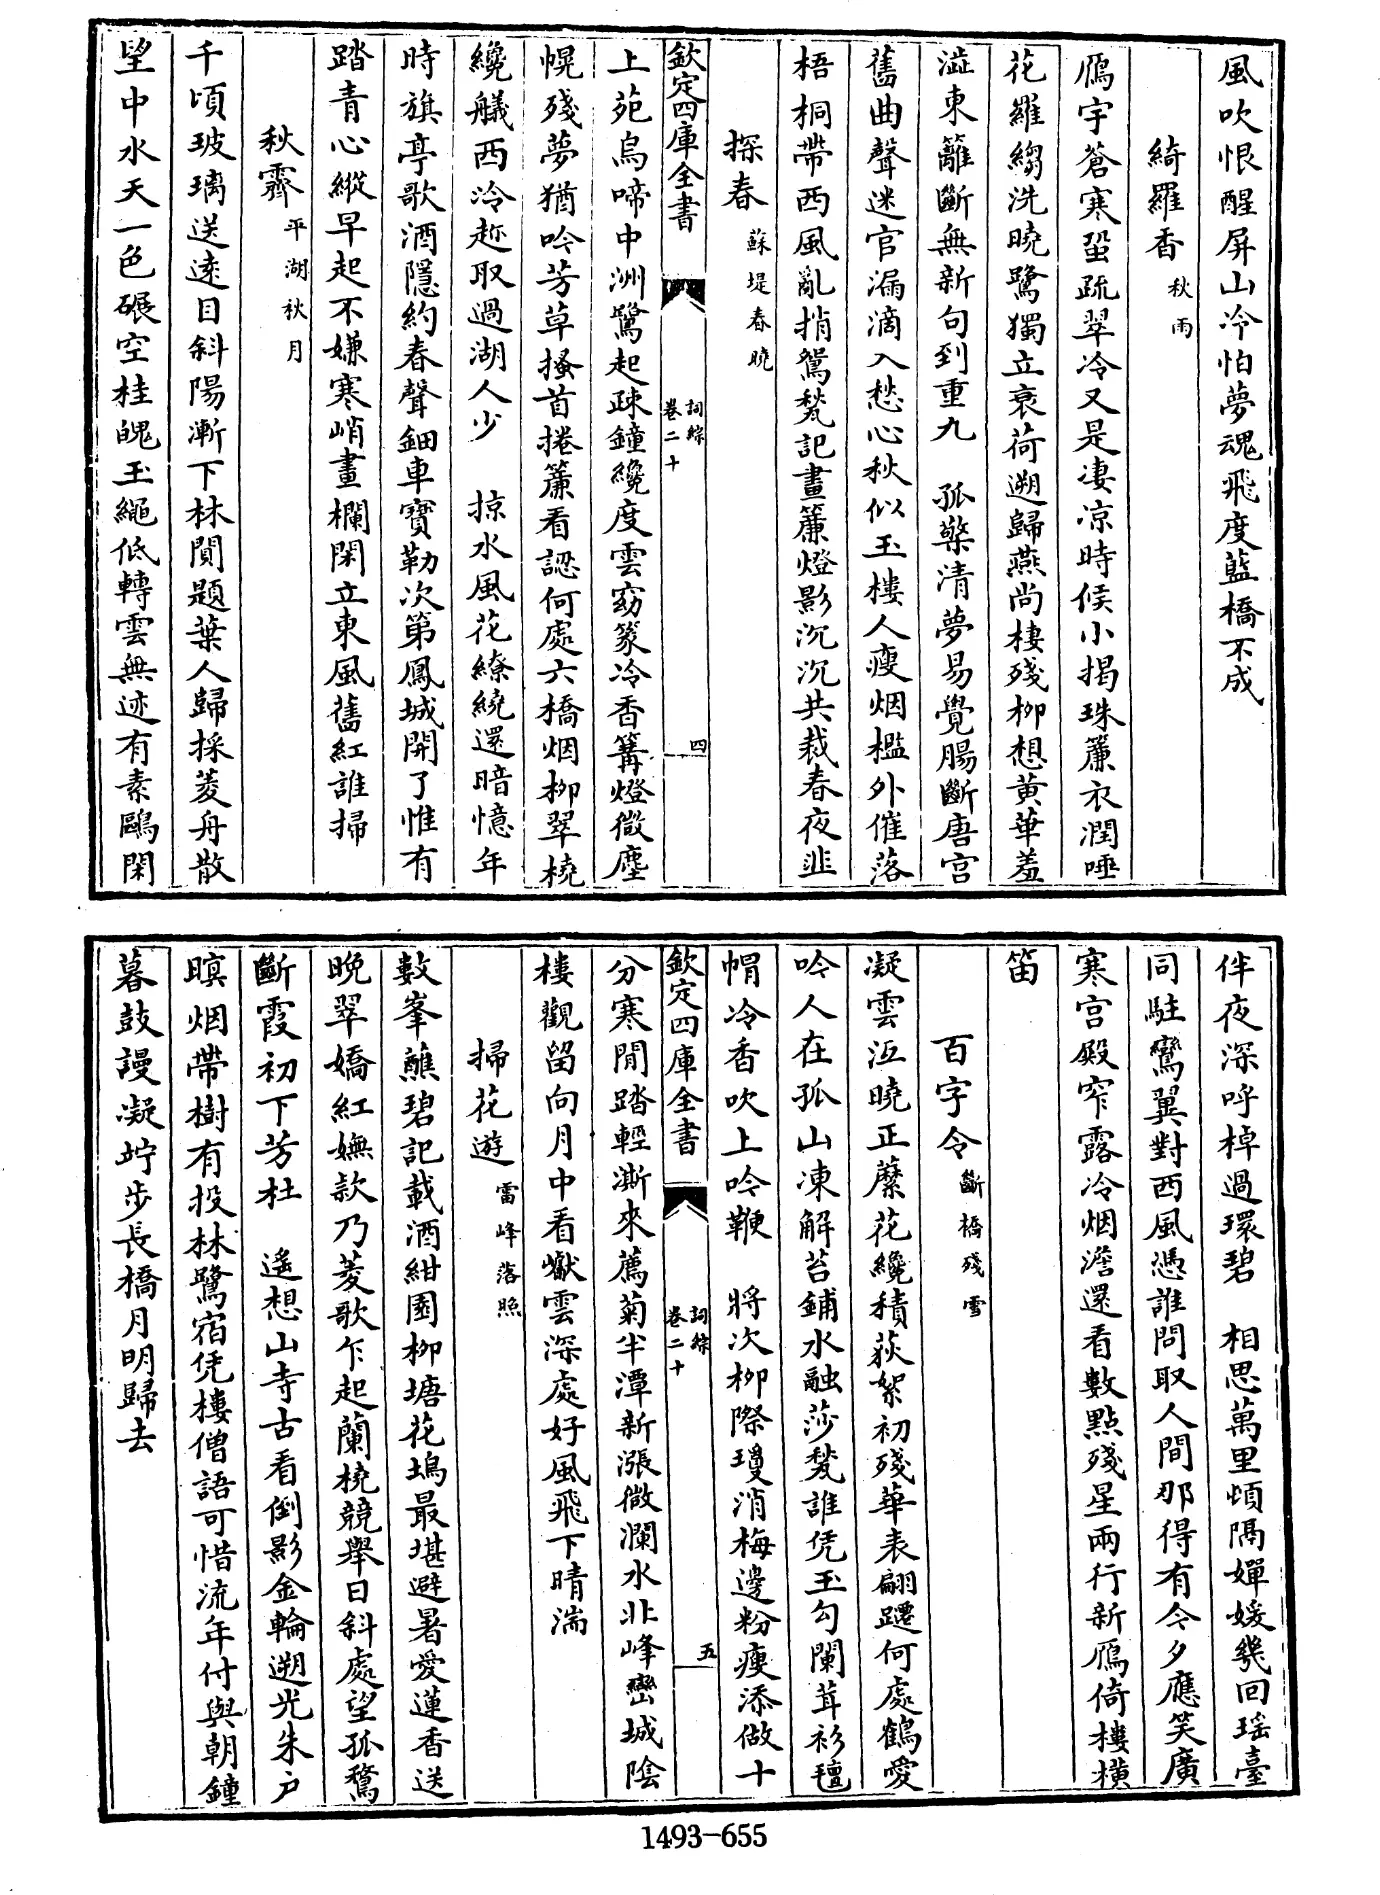 風吹恨醒屏山冷怕夢魂飛度藍橋不成
綺羅香 秋雨
鴈宇蒼寒蛩疏翠冷又是凄凉時候小揭珠簾衣潤唾
花羅縐洗曉鷺獨立衰荷遡歸燕尚棲殘柳想黃華羞
澁東籬斷無新句到重九 孤檠清夢易覺腸斷唐宮
舊曲聲迷宮漏滴入愁心秋似玉樓人瘦烟檻外催落
梧桐帶西風亂捎鴛甃記畫簾燈影沉沉共裁春夜韭
探春 蘇堤春曉
欽定四庫全書 詞綜 卷二十 四
上苑烏啼中洲鷺起疎鐘纔度雲窈篆冷香篝燈微塵
幌殘夢猶吟芳草搔首捲簾看認何處六橋烟柳翠橈
纔艤西泠趂取過湖人少 掠水風花繚繞還暗憶年
時旗亭歌酒隱約春聲鈿車寶勒次第鳳城開了惟有
踏青心縱早起不嫌寒峭畫欄閑立東風舊紅誰掃
秋霽 平湖秋月
千頃玻璃送遠目斜陽漸下林闃題葉人歸採菱舟散
望中水天一色碾空桂魄玉繩低轉雲無迹有素鷗閑
伴夜深呼棹過環碧 相思萬里頓隔嬋媛幾回瑤臺
同駐鸞翼對西風憑誰問取人間那得有今夕應笑廣
寒宮殿窄露冷烟澹還看數點殘星兩行新鴈倚樓橫
笛
百字令 斷橋殘雪
凝雲沍曉正蘂花纔積荻絮初殘華表翩躚何處鶴愛
吟人在孤山凍解苔鋪水融莎甃誰凭玉勾闌茸衫氊
帽冷香吹上吟鞭 將次柳際瓊消梅邊粉瘦添做十
欽定四庫全書 詞綜 卷二十 五
分寒閒踏輕澌來薦菊半潭新漲微瀾水北峰巒城陰
樓觀留向月中看巘雲深處好風飛下晴湍
掃花遊 雷峰落照
數峯蘸碧記載酒紺園柳塘花塢最堪避暑愛蓮香送
晚翠嬌紅嫵款乃菱歌乍起蘭橈競舉日斜處望孤鶩
斷霞初下芳杜 遙想山寺古看倒影金輪遡光朱戶
暝烟帶樹有投林鷺宿凭樓僧語可惜流年付與朝鐘
暮鼓謾凝竚步長橋月明歸去
1493-655